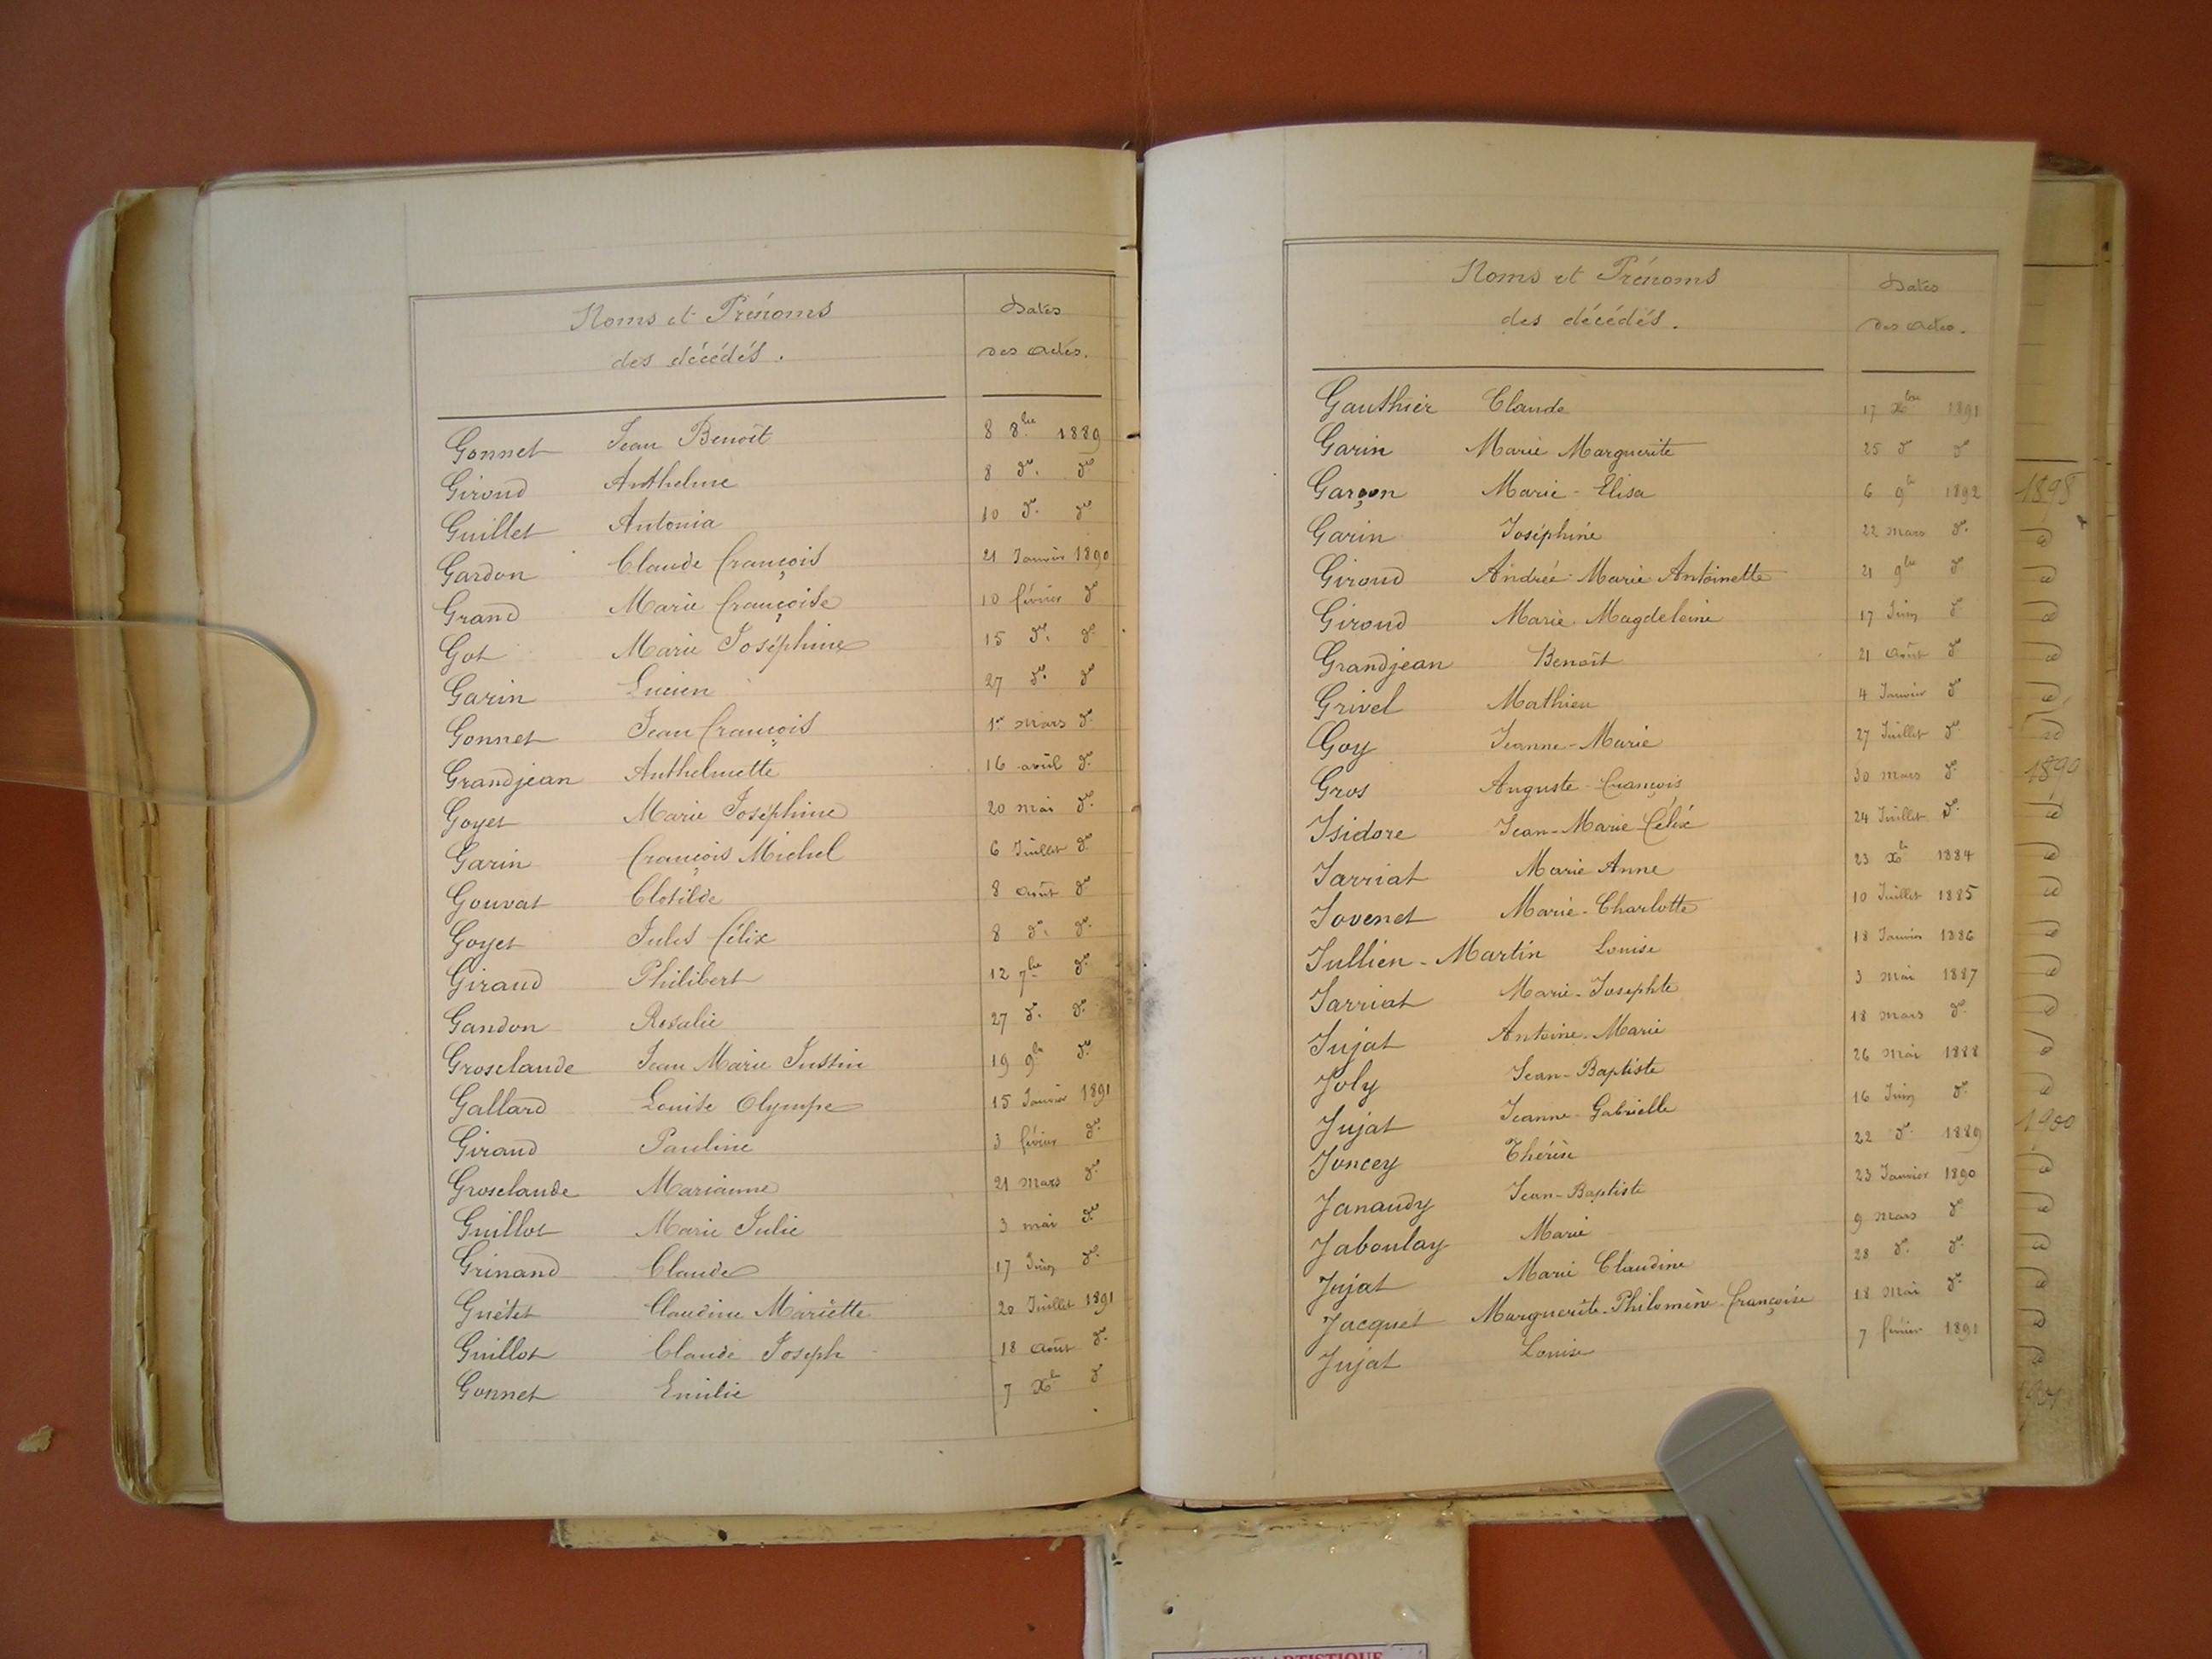 Noms et Prénoms
des décédés.
Dates
des actes.
Gonnet Jean Benoît 8 8bre 1889
Giroud Anthelme 8 do. do
Guillet Antonia 10 do. do
Gardon Claude François 21 Janvier 1890
Grand Marie Françoise 10 février do
Got Marie Joséphine 15 do. do
Garin Lucien 27 do. do
Gonnet Jean François 1er mars do.
Grandjean Anthelmette 16 avril do.
Goyet Marie Joséphine 20 mai do.
Garin François Michel 6 Juillet do.
Gouvat Clotilde 8 août do
Goyet Jules Félix 8 do. do.
Giraud Philibert 12 7bre do.
Gandon Rosalie 27 do. do.
Grosclaude Jean Marie Justin 19 9bre do.
Gallard Louise Olympe 15 Janvier 1891
Giraud Pauline 3 février do.
Grosclaude Marianne 21 mars do.
Guillot Marie Julie 3 mai do.
Grinand Claude 17 Juin do.
Guétet Claudine Mariette 20 Juillet 1891
Guillot Claude Joseph 18 août do.
Gonnet Emilie 7 Xbre do
Noms et Prénoms
des décédés.
Dates
des actes.
Gauthier Claude 17 Xbre 1891
Garin Marie Marguerite 25 do do
Garçon Marie-Elisa 6 9bre 1892
Garin Joséphine 22 mars do.
Giroud Andrée Marie Antoinette 21 9bre do
Giroud Marie Magdeleine 17 Juin do
Grandjean Benoît 21 août do
Grivel Mathieu 4 Janvier do
Goy Jeanne-Marie 27 Juillet do
Gros Auguste-François 30 mars do.
Isidore Jean-Marie Félix 24 Juillet do.
Jarriat Marie Anne 23 Xbre 1884
Jovenet Marie-Charlotte 10 Juillet 1885
Jullien-Martin Louise 18 Janvier 1886
Jarriat Marie-Josephte 3 mai 1887
Jujat Antoine-Marie 18 mars do.
Joly Jean-Baptiste 26 mai 1888
Jujat Jeanne-Gabrielle 16 Juin do.
Joncey Thérèse 22 do. 1889
Janaudy Jean-Baptiste 23 Janvier 1890
Jaboulay Marie 9 mars do
Jujat Marie Claudine 28 do. do.
Jacquet Marguerite-Philomène-Françoise 18 mai do.
Jujat Louise 7 février 1891
1898
1890
1900